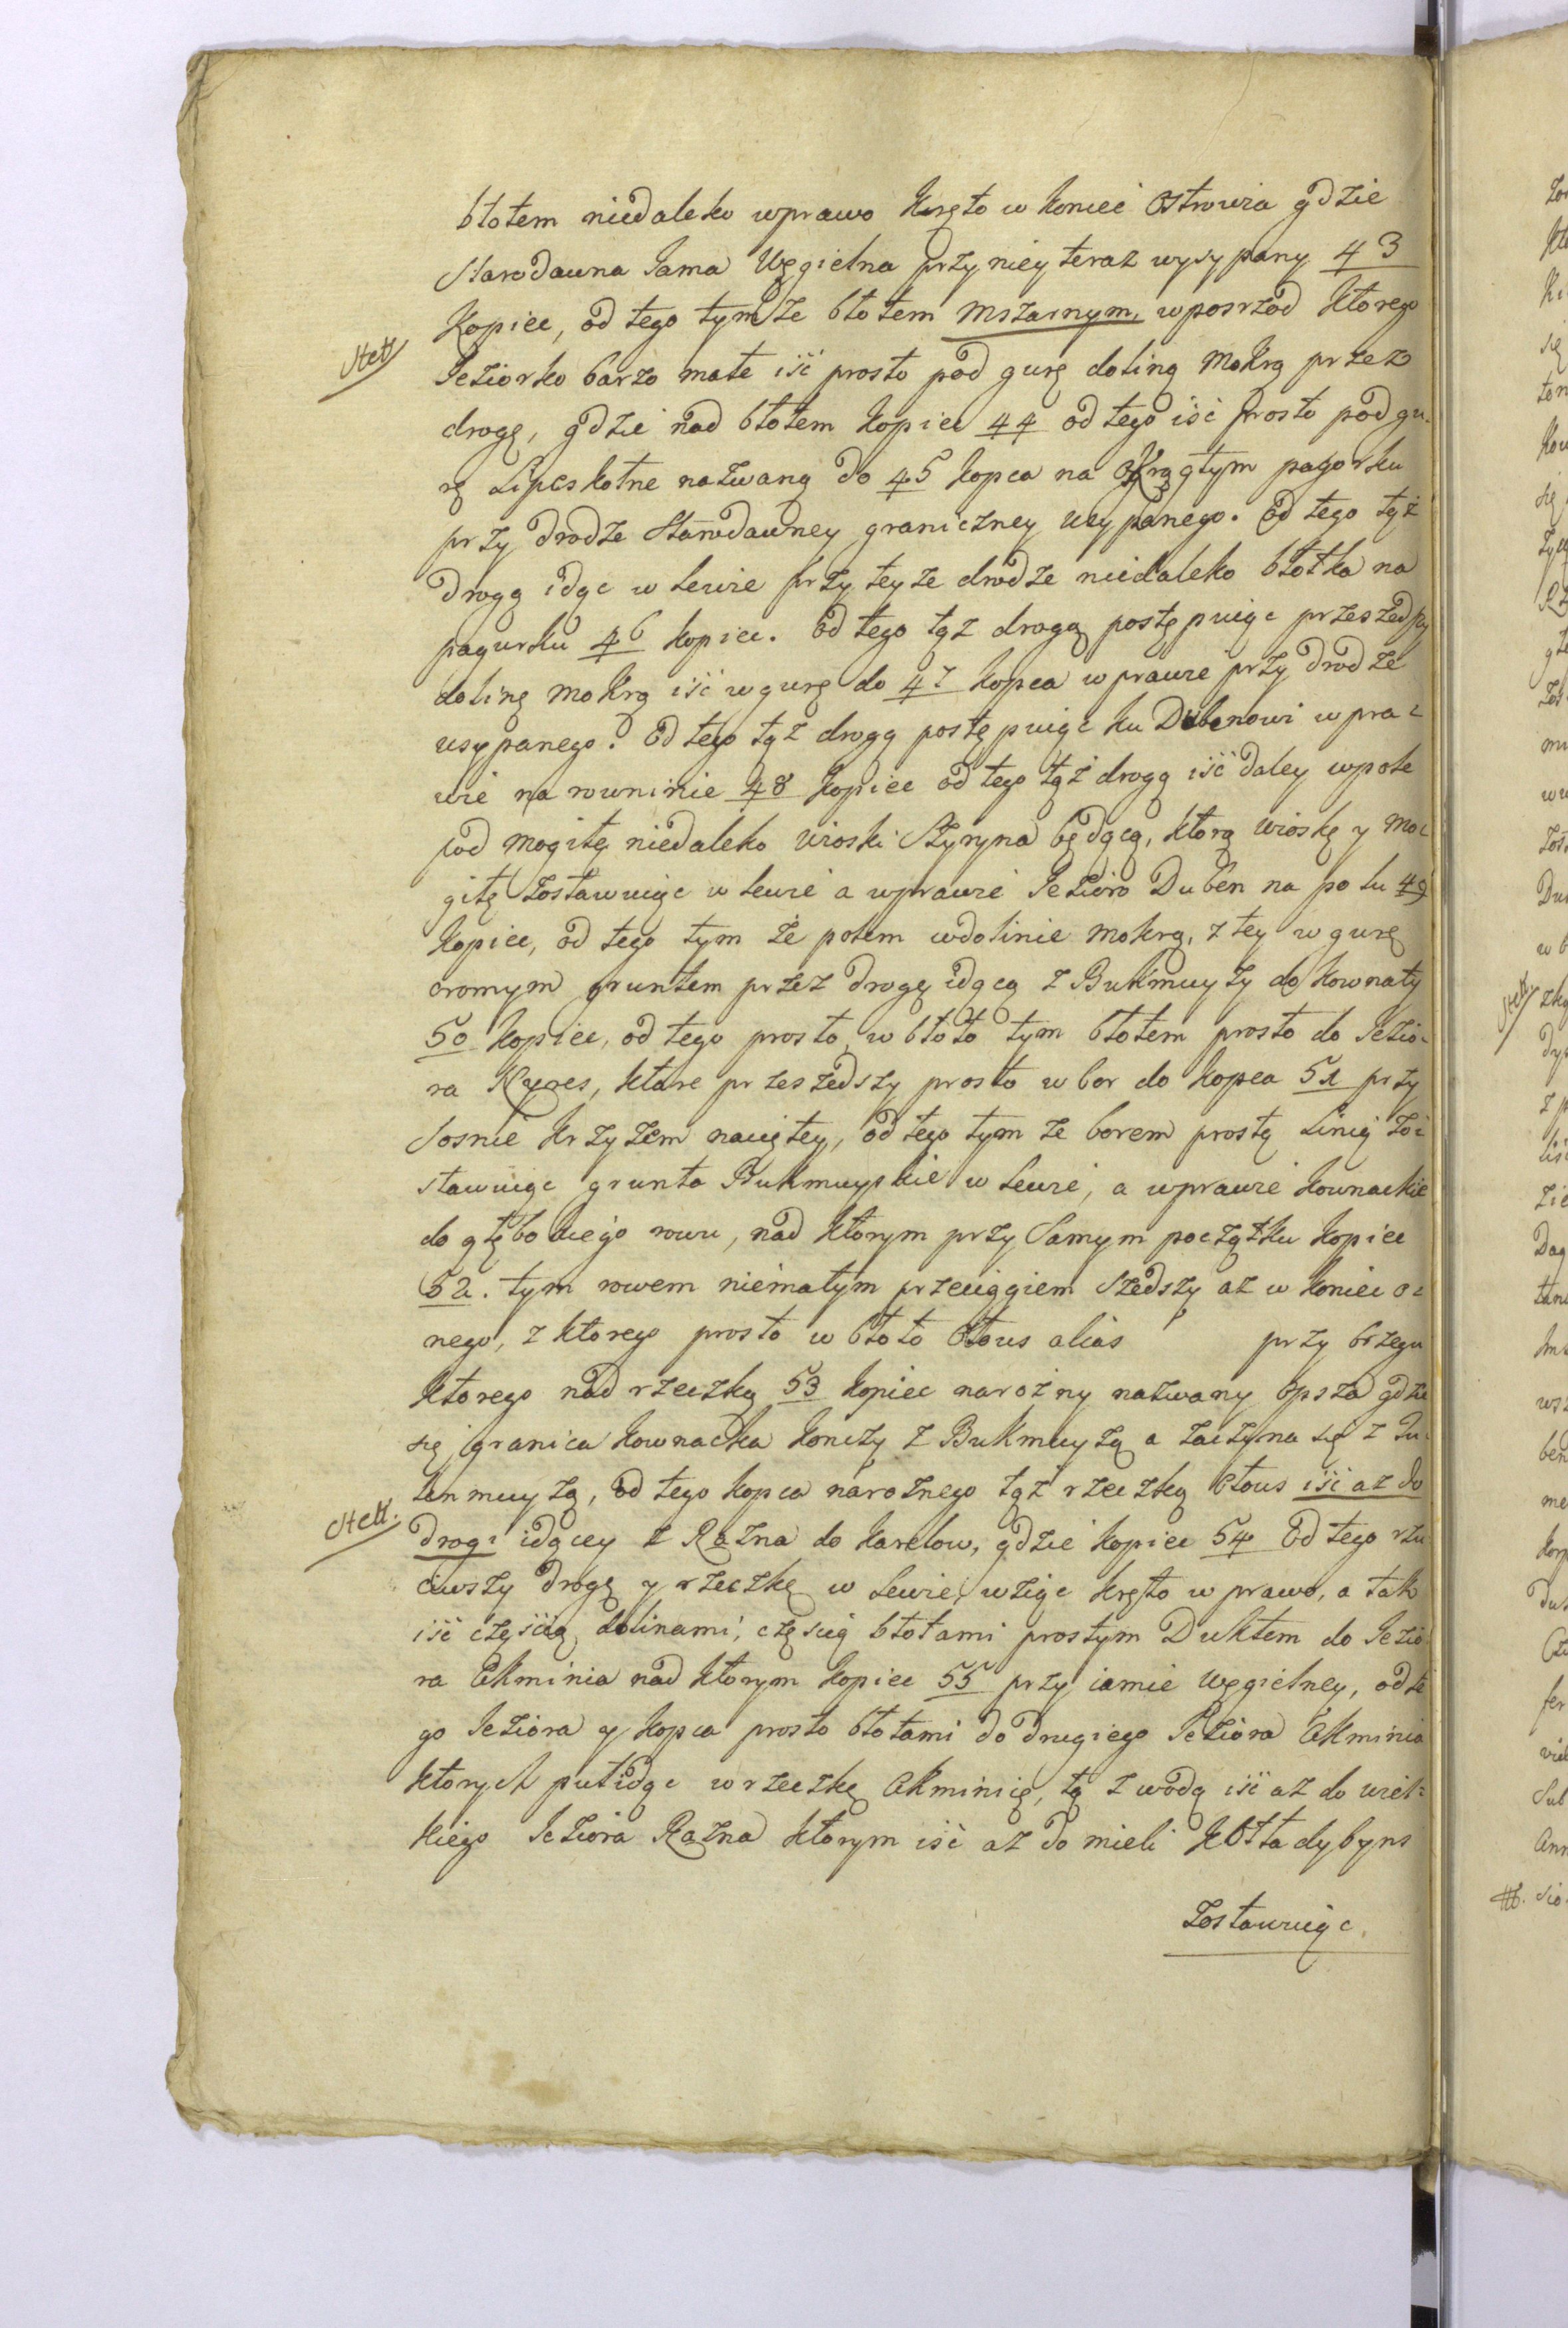 błotem niedaleko wprawo kręto w koniec Ostrowia gdzie
Starodawna Jama Węgielna przy niey teraz wysypany 43
Kopiec, od tego tym że błotem mszarnym, wposrzod ktorego
Stett
Jeziorko barzo małe iść prosto pod gurę doliną mokrą przez
drogę, gdzie nad błotem kopiec 44 od tego iść prosto pod gu-
rę Lipeskolne nazwaną do 45 kopca na okrągłym pagorku
przy drodze Starodawney graniczney usypanego. Od tego tąż
drogą idąc w lewie przy teyże drodze niedaleko błotka na
pagurku 46 kopiec. Od tego tąż drogą postępuiąc przeszedszy
dolinę mokrą iść w gurę do 47 kopca w prawie przy drodze
usypanego. Od tego tąż drogą postępuiąc ku Dubenowi w pra-
wie na rowninie 48 kopiec od tego tąż drogą iść daley w pole
pod mogiłę niedaleko wioski Styryna będącą, ktorą wioskę y mo-
giłę zostawuiąc w lewie a wprawie Jezioro Duben na polu 49
kopiec, od tego tym że polem w dolinie mokrą, z tey w gurę
oromym gruntem przez drogę idącą z Bukmuyży do Kownaty
50 kopiec, od tego prosto w błoto tym błotem prosto do Jezio-
ra Kyres, ktore przeszedszy prosto w bor do kopca 51 przy
Sosnie krzyżem naciętey, od tego tym że borem prostą Linią zo-
stawuiąc grunta Bukmuyskie w lewie, a wprawie Kownackie
do głębokiego rowu, nad ktorym przy Samym początku kopiec
52. tym rowem niemałym przeciągiem szedszy aż w koniec o-
nego, z ktorego prosto w błoto Ołows alias przy brzegu
ktorego nad rzeczką 53 kopiec narożny nazwany Opsza gdzie
się granica Kownacka konczy z Bukmuyżą a zaczyna się z Lu-
zenmuyżą, od tego kopca narożnego tąż rzeczką Ołows iść aż do
Stett.
drogi idącey z Rażna do Karelow, gdzie kopiec 54 Od tego rzu-
ciwszy drogę y rzeczkę w lewie, wziąc kręto w prawo, a tak
iść częścią dolinami, częścią błotami prostym Duktem do Jezio-
ra Ekminia nad ktorym kopiec 55 przy iamie węgielney, od te-
go Jeziora y kopca prosto błotami do drugiego Jeziora Ekminia
ktorych put idąc w rzeczkę Ekminię, tą z wodą iść aż do wiel-
kiego Jeziora Rażna ktorym iść aż do mieli Kołładybyns
Zostawuiąc.